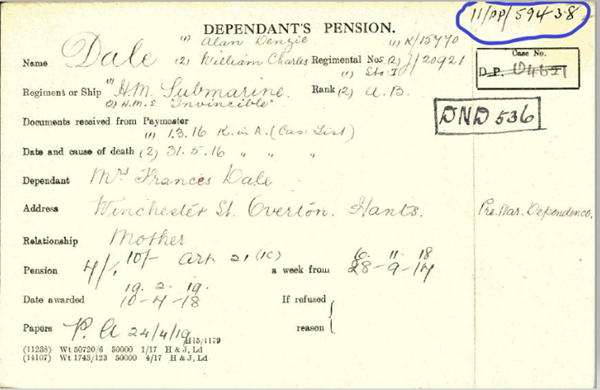 11/DP/59438
DEPENDANT'S PENSION.
(1) Alan Denzie (1) K/15770
Name Dale (2) William Charles Regimental Nos. (2) J/20921
Case No.
D.P.
(1) Sto. I
Regiment or Ship H.M. Submarine. Rank (2) A.B.
(2) H.M.S "Invincible"
DND 536
Documents received from Paymaster
(1) 1.3.16 K. in A. (Cas. List)
Date and cause of death (2) 31.5.16 " " "
Dependant Mrs Frances Dale
Address Winchester St. Overton. Hants. Pre. War. Dependence.
Relationship Mother
10/- Art 21 (1C) 6. 11. 18
Pension 4/- a week from 28-9-17
19. 2. 19.
Date awarded 10-4-18 If refused
reason
Papers P. A 24/4/19 H15/1179
(11238) Wt 50720/6 50000 1/17 H & J, Ld
(14107) Wt 1743/123 50000 4/17 H & J, Ld